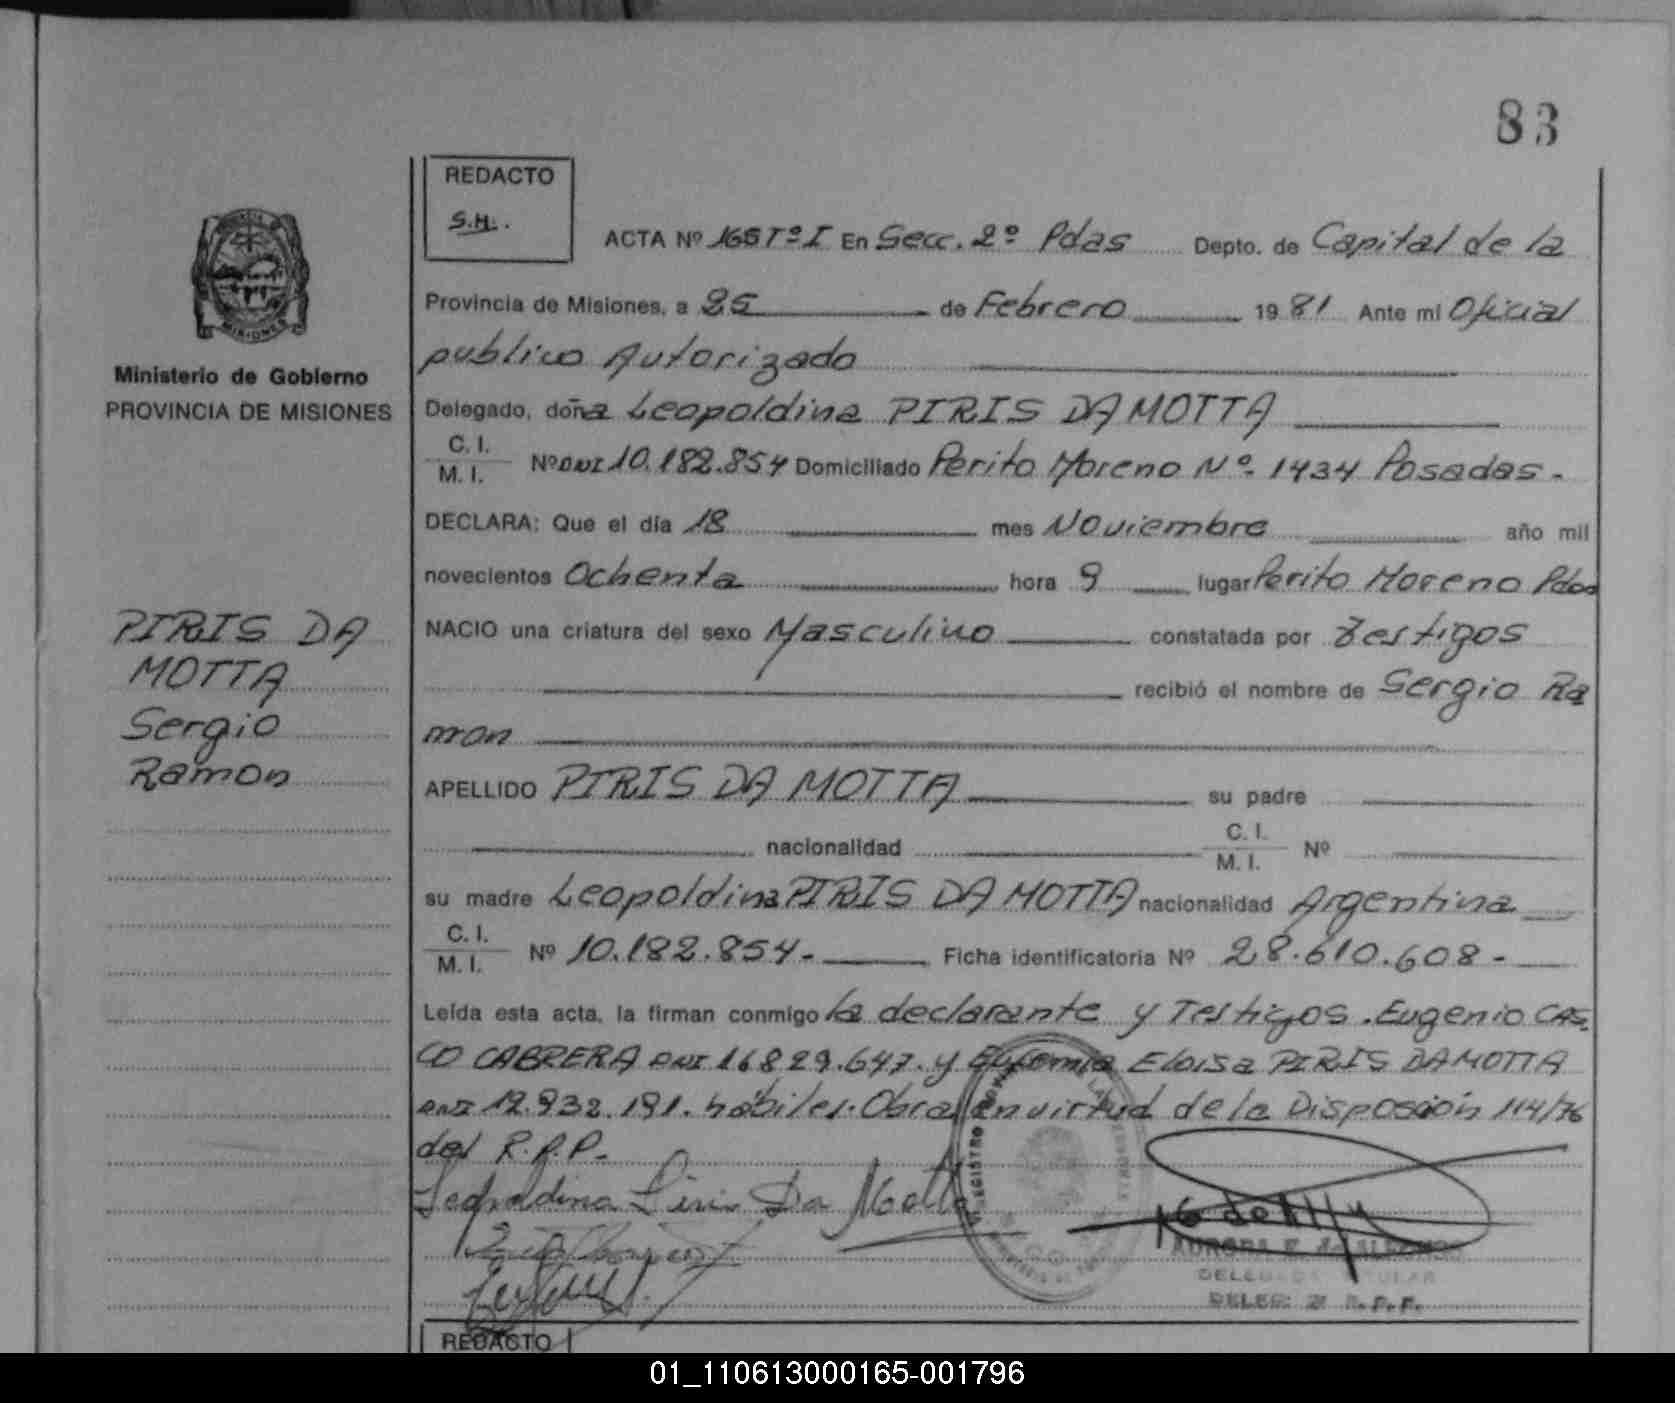 83
REDACTO
S.H.
ACTA Nº 165 Tº I En Secc. 2º Pdas Depto. de Capital de la
Provincia de Misiones, a 25 de Febrero 1981 Ante mi Oficial
publico Autorizado
Ministerio de Gobierno
PROVINCIA DE MISIONES
Delegado, doña Leopoldina PIRIS DA MOTTA
C. I.
M. I. Nº DNI 10.182.854 Domiciliado Perito Moreno Nº 1434 Posadas.
DECLARA: Que el día 18 mes Noviembre año mil
novecientos Ochenta hora 9 lugar Perito Moreno Pdas
NACIO una criatura del sexo Masculino constatada por Testigos
recibió el nombre de Sergio Ra
mon
PIRIS DA
MOTTA
Sergio
Ramon
APELLIDO PIRIS DA MOTTA su padre
nacionalidad C. I.
M. I. Nº
su madre Leopoldina PIRIS DA MOTTA nacionalidad Argentina
C. I.
M. I. Nº 10.182.854- Ficha identificatoria Nº 28.610.608-
Leída esta acta, la firman conmigo la declarante y Testigos. Eugenio CAS
CO CABRERA DNI 16829.647. y Eufemia Eloisa PIRIS DA MOTTA
DNI 12.932.191. hábiles. Obra en virtud de la Disposción 114/76
del R.P.P.
Leopoldina Piris Da Motta
AURORA E. de
DELEGADA TITULAR
DELEG. 2ª R.P.P.
REDACTO
01_110613000165-001796